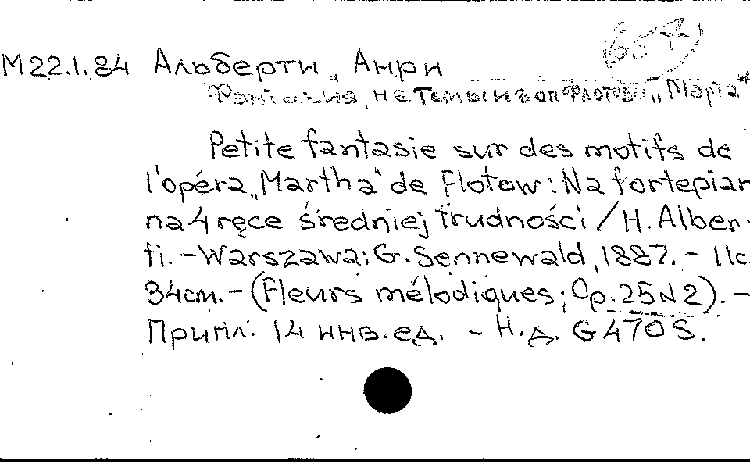 М22.1.84 Альберти, Анри
Фантазия на темы из оп Флотова „Марта“
Petite fantasie sur des motifs de
l'opéra „Martha“ de Flotow: Na fortepian
na 4 ręce średniej trudności / H. Alber-
ti. – Warszawa: G. Sennewald, 1887. – 11c.
34cm. – (Fleurs mélodiques; Op. 25 N 2). –
Припл. 14 инв. ед. – Н. д. G 470 S.